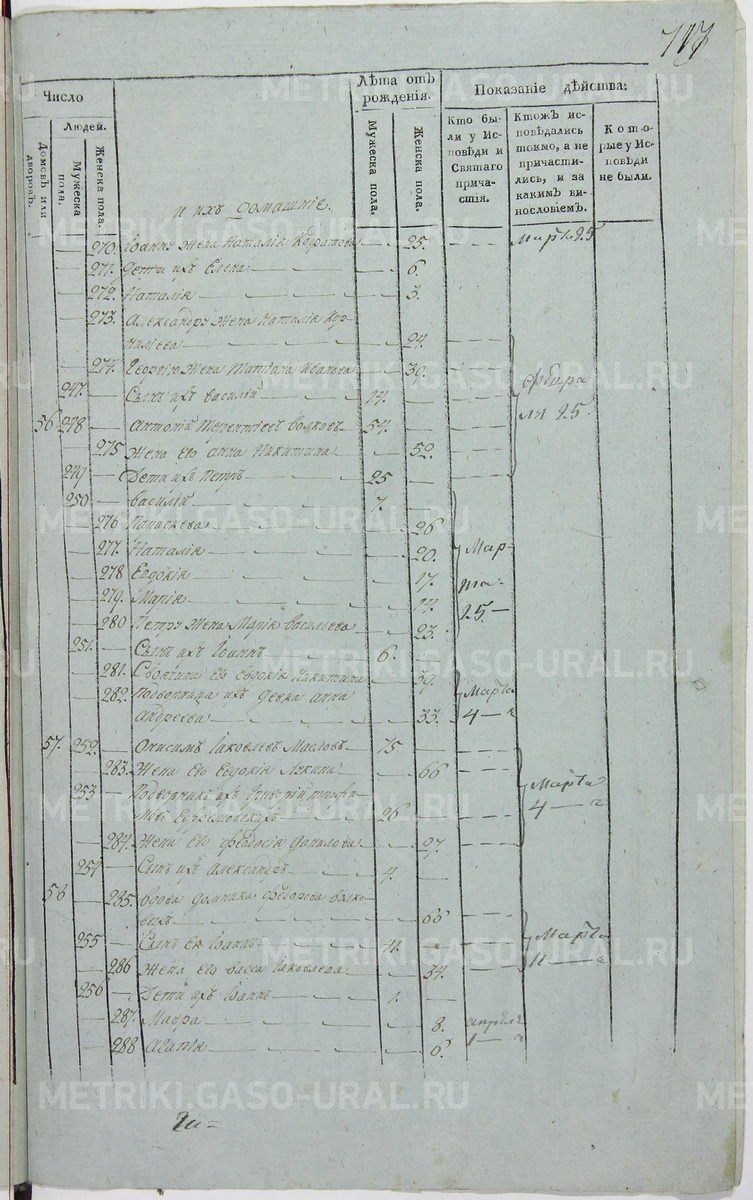 717
Число
Лѣта отъ рожденія.
Показаніе дѣйства.
Людей.
Домовъ или дворовъ.
Мужеска пола.
Женска пола.
Мужеска пола.
Женска пола.
Кто были у Исповѣди и Святаго причастія.
Ктожъ исповѣдались токмо, а не причастились, и за какимъ винословіемъ.
Которые у Исповѣди не были.
и ихъ домашніе.
270. Іоанну жена Наталія 25. Марта 25
271. Дети ихъ Елена 6.
272. Наталія 3.
273. Александру жена Наталія Кор-
нилѣева 24.
274. Георгію жена Иванова 30. февра
247. Сынъ ихъ Василій 14. ля 25.
56 248 Антоній Терентіевъ Волковъ 54.
275 Жена его Анна Никитина 52.
249 Дети ихъ Петръ 25
250 Василій 7.
276 Параскева 26
277. Наталія 20. Мар-
278 Евдокія 17. та
279. Марія 14. 25
280 Петру жена Марія Васильева 23.
251. Сынъ ихъ Іоаннъ 6.
281. его Евдокія Никитина 30.
282. ихъ девка Анна Марта
Андреева 33. 4
57. 252. Онисимъ Іаковлевъ Масловъ 75
283. Жена его Евдокія Лукина 66
253 ихъ Григорій Трофи- Марта
мовъ 26 4
284. Жена его Феодосія Данилова 27.
254 Сынъ ихъ Александръ 4.
58 285. Вдова Домника Федорова Волко-
выхъ 66
255 Сынъ ея Іоаннъ 41. Марта
286 Жена его Васса Іаковлева 34. 11
256 Дети ихъ Іоаннъ 1.
287. Мавра 8. апрѣля
288 Агапія 6. 1
METRIKI.GASO-URAL.RU